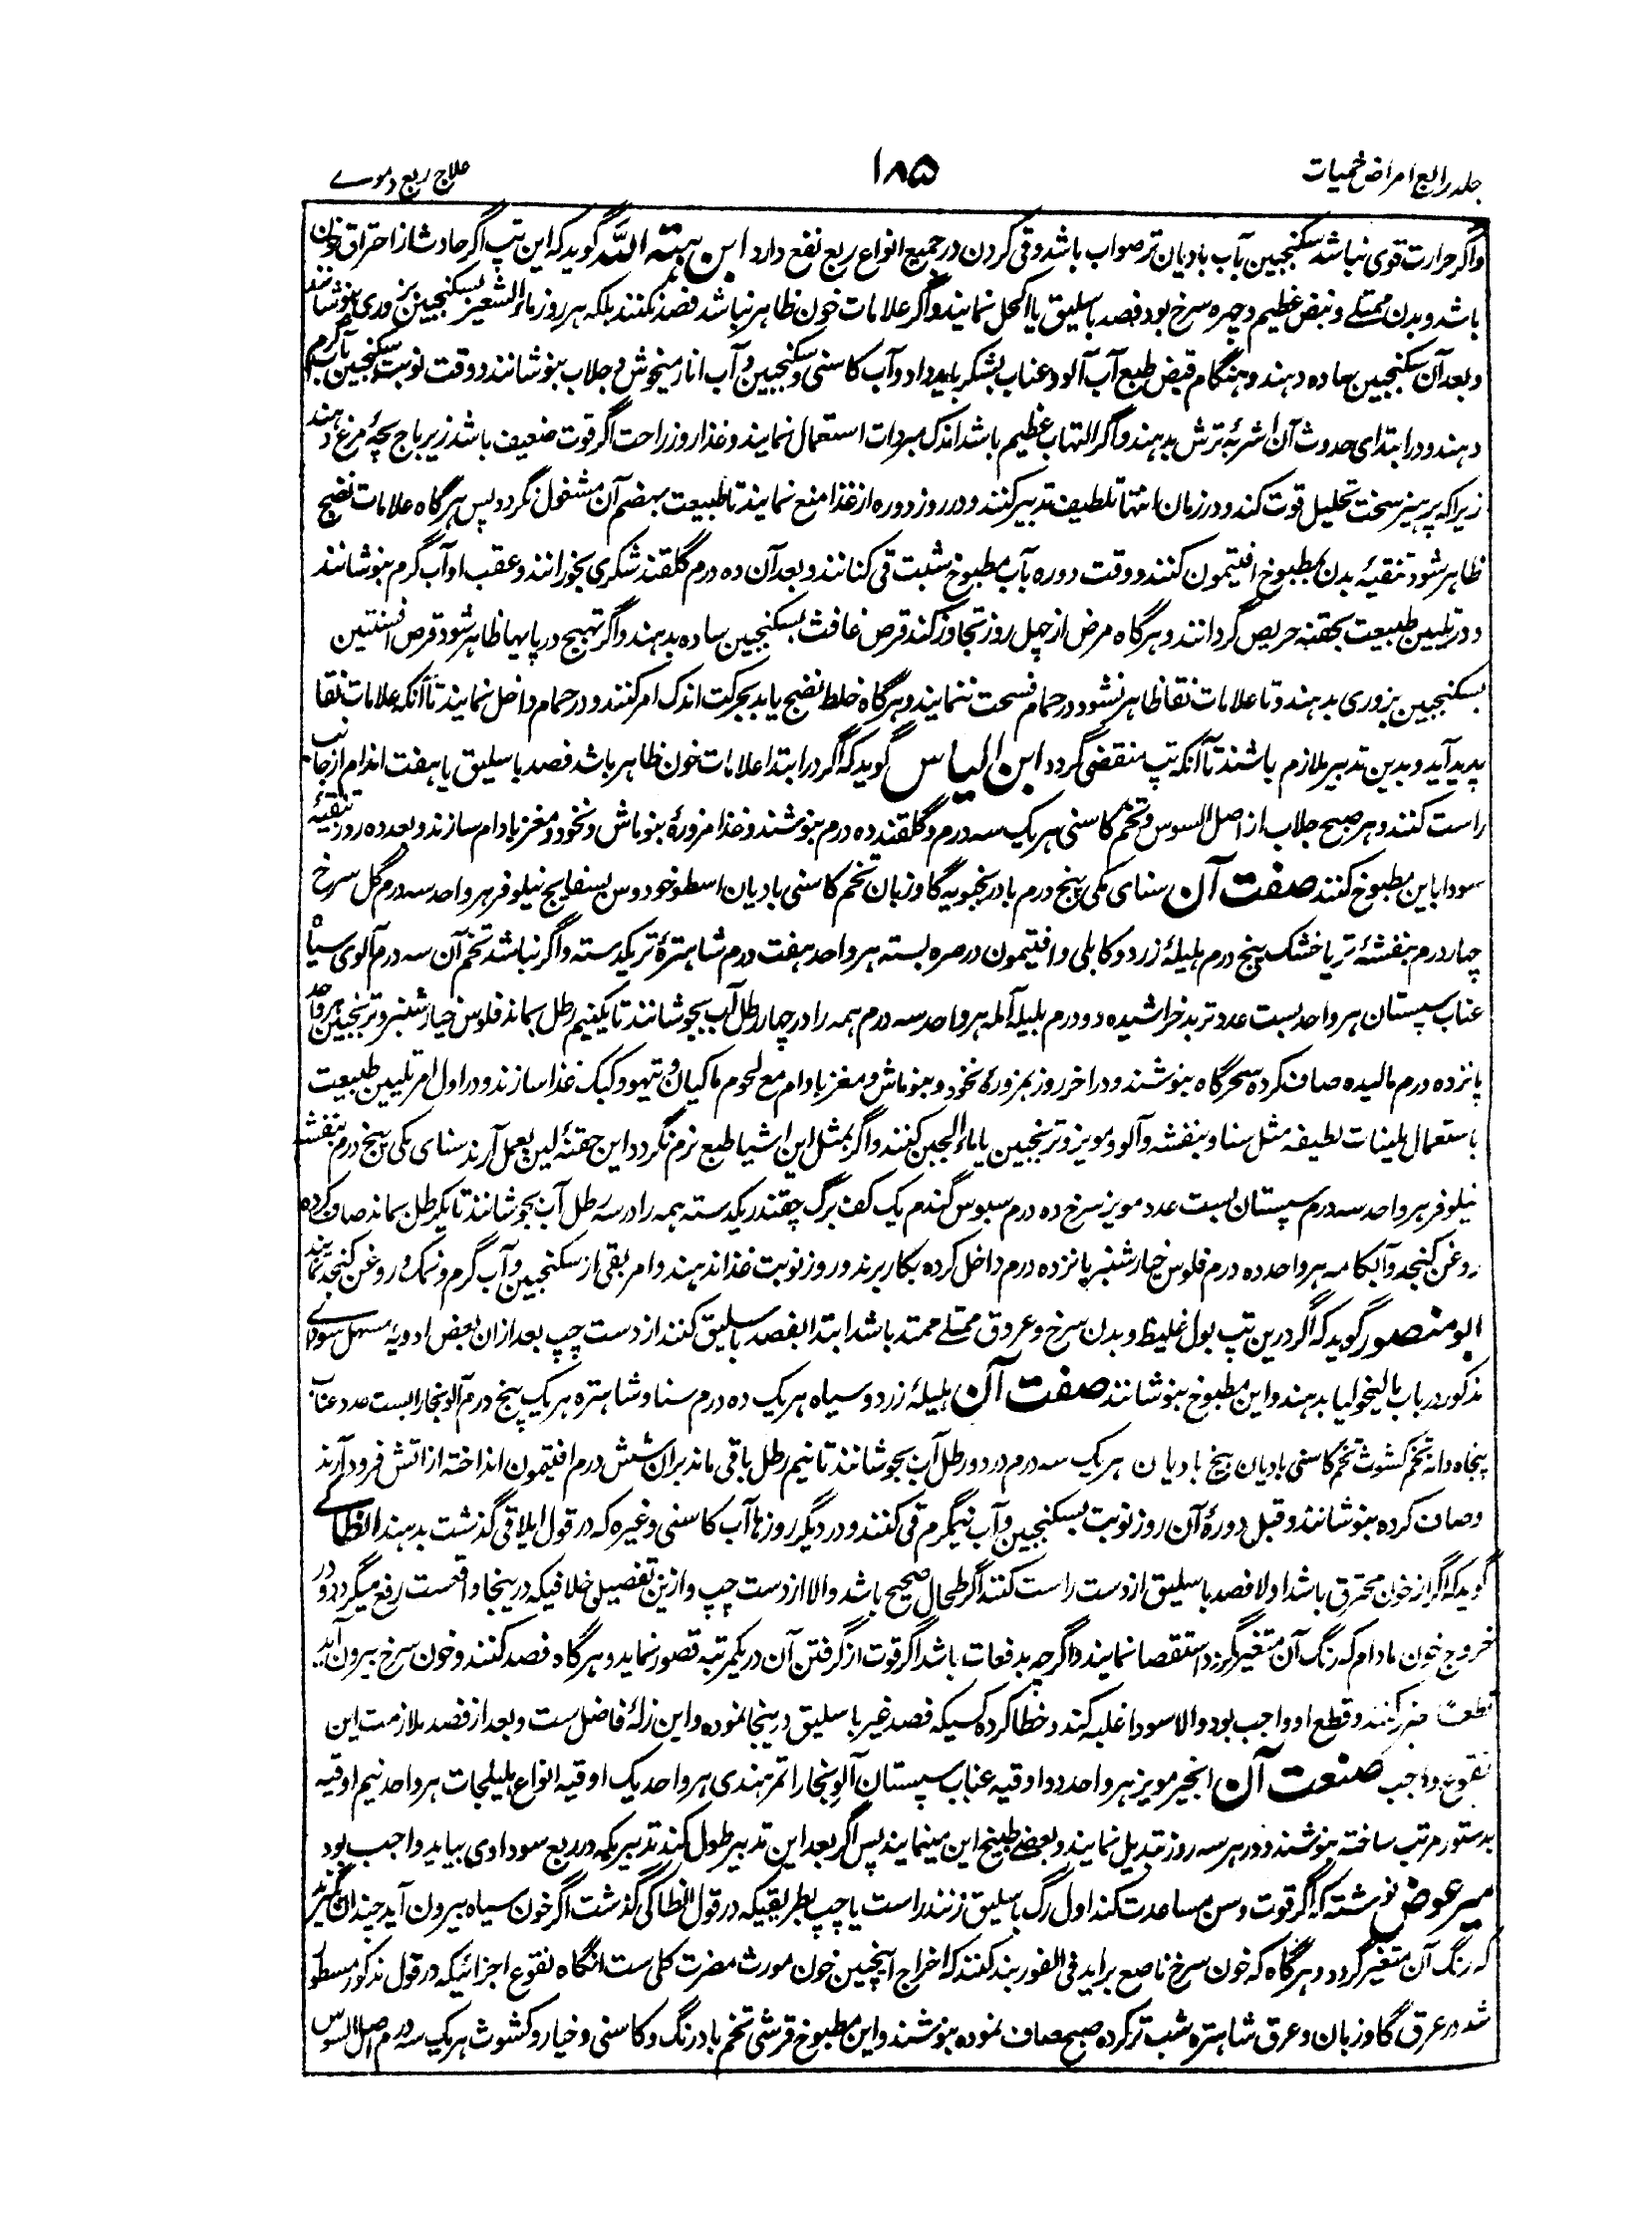 جلد رابع امراض حمیات
۱۸۵
علاج ربع دموے
واگر حرارت قوی نباشد سکنجبین بآب بادیان تر صواب باشد و قی کردن در جمیع انواع ربع نفع دارد ابن ہبتہ اللہ گوید کہ این تپ اگر حادث از احتراق خون
باشد و بدن ممتلے و نبض عظیم و چہرہ سرخ بود فصد باسلیق یا اکحل نمایند و اگر علامات خون ظاہر نباشد فصد نکنند بلکہ ہر روز ماء الشعیر بسکنجبین بزوری بنوشانند
و بعد آن سکنجبین سادہ دہند و ہنگام قبض طبع آب آلو و عناب بشکر باید داد و آب کاسنی و سکنجبین و آب انار میخوش و جلاب بنوشانند و وقت نوبت سکنجبین بآب گرم
دہند و در ابتدای حدوث آن اشربۂ ترش بدہند و اگر التہاب عظیم باشد اندک مبردات استعمال نمایند و غذا روز راحت اگر قوت ضعیف باشد زیرباج بچۂ مرغ دہند
زیرا کہ پرہیز سخت تحلیل قوت کند و در زمان انتہا تلطیف تدبیر کنند و در روز دورہ از غذا منع نمایند تا طبیعت بہضم آن مشغول نگردد پس ہرگاہ علامات نضج
ظاہر شود تنقیۂ بدن بمطبوخ افتیمون کنند و وقت دورہ بآب مطبوخ شبت قی کنانند و بعد آن دہ درم گلقند شکری بخورانند و عقب او آب گرم بنوشانند
و در تلیین طبیعت بحقنہ حریص گردانند و ہرگاہ مرض از چہل روز تجاوز کند قرص غافث بسکنجبین سادہ بدہند و اگر تہبج در پایہا ظاہر شود قرص افسنتین
بسکنجبین بزوری بدہند و تا علامات نقا ظاہر نشود در حمام فسحت ننمایند و ہرگاہ خلط نضج یابد بحرکت اندک امر کنند و در حمام داخل نمایند تا آنکہ علامات نقا
پدید آید و بدین تدبیر ملازم باشند تا آنکہ تپ منقضی گردد ابن الیاس گوید کہ اگر در ابتدا علامات خون ظاہر باشد فصد باسلیق یا ہفت اندام از جانب
راست کنند و ہر صبح جلاب از اصل السوس و تخم کاسنی ہر یک سہ درم و گلقند دہ درم بنوشند و غذا مزورۂ بنوماش و نخود و مغز بادام سازند و بعد دہ روز تنقیۂ
سودا باین مطبوخ کنند صفت آن سنای مکی پنج درم بادرنجبویہ گاوزبان تخم کاسنی بادیان اسطوخودوس بسفایج نیلوفر ہر واحد سہ درم گل سرخ
چہار درم بنفشۂ تر یا خشک پنج درم ہلیلۂ زرد و کابلی و افتیمون در صرہ بستہ ہر واحد ہفت درم شاہترۂ تر یکدستہ و اگر نباشد تخم آن سہ درم آلوی سیاہ
عناب سپستان ہر واحد بست عدد تربد خراشیدہ دو درم بلیلہ آملہ ہر واحد سہ درم ہمہ را در چہار رطل آب بجوشانند تا یکنیم رطل بماند فلوس خیارشنبر و ترنجبین ہر واحد
پانزدہ درم مالیدہ صاف کردہ سحرگاہ بنوشند و در آخر روز بمزورۂ نخود و بنوماش و مغز بادام مع لحوم ماکیان و تیہو و کبک غذا سازند و در اول امر تلیین طبیعت
باستعمال ملینات لطیفہ مثل سنا و بنفشہ و آلو و مویز و ترنجبین یا ماء الجبن کنند و اگر بمثل این اشیا طبع نرم نگردد این حقنۂ لین بعمل آرند سنای مکی پنج درم بنفشہ
نیلوفر ہر واحد سہ درم سپستان بست عدد مویز سرخ دہ درم سبوس گندم یک کف برگ چقندر یکدستہ ہمہ را در سہ رطل آب بجوشانند تا یکرطل بماند صاف کردہ
روغن کنجد و آبکامہ ہر واحد دہ درم فلوس خیارشنبر پانزدہ درم داخل کردہ بکار برند و روز نوبت غذا ندہند و امر بقی از سکنجبین و آب گرم و نمک و روغن کنجد نمایند
ابو منصور گوید کہ اگر درین تپ بول غلیظ و بدن سرخ و عروق ممتلے ممتد باشد ابتدا بفصد باسلیق کنند از دست چپ بعد ازان بعض ادویۂ مسہل سودا
مذکور در باب مالیخولیا بدہند و این مطبوخ بنوشانند صفت آن ہلیلۂ زرد و سیاہ ہر یک دہ درم سنا و شاہترہ ہر یک پنج درم آلو بخارا بست عدد عناب
پنجاہ دانہ تخم کشوث تخم کاسنی بادیان بیخ بادیان ہر یک سہ درم در دو رطل آب بجوشانند تا نیم رطل باقی ماند بران شش درم افتیمون انداختہ از آتش فرود آرند
و صاف کردہ بنوشانند و قبل دورۂ آن روز نوبت بسکنجبین و آب نیمگرم قی کنند و در دیگر روزہا آب کاسنی و غیرہ کہ در قول ایلاقی گذشت بدہند انطاکے
گوید کہ اگر از خون محترق باشد اولا فصد باسلیق از دست راست کنند اگر طحال صحیح باشد والا از دست چپ و ازین تفصیل خلافیکہ درینجا واقعست رفع میگردد و در
خروج خون مادام کہ رنگ آن متغیر گردد استقصا نمایند و اگرچہ بدفعات باشد اگر قوت از گرفتن آن در یکمرتبہ قصور نماید و ہرگاہ فصد کنند و خون سرخ بیرون آید
کنند و قطع او واجب بود والا سودا غلبہ کند و خطا کردہ کسیکہ فصد غیر باسلیق درینجا نمودہ و این زلۂ فاضل ست و بعد از فصد ملازمت این
نقوع واجب صنعت آن انجیر مویز ہر واحد دو اوقیہ عناب سپستان آلو بخارا تمر ہندی ہر واحد یک اوقیہ انواع ہلیلجات ہر واحد نیم اوقیہ
بدستور مرتب ساختہ بنوشند و در ہر سہ روز تبدیل نمایند و بعضے طبیخ این مینمایند پس اگر بعد این تدبیر طول کند تدبیریکہ در ربع سوداوی بیاید واجب بود
میر عوض نوشتہ کہ اگر قوت و سن مساعدت کند اول رگ باسلیق زنند راست یا چپ بطریقیکہ در قول انطاکی گذشت اگر خون سیاہ بیرون آید چندان گیرند
کہ رنگ آن متغیر گردد و ہرگاہ کہ خون سرخ ناصع برآید فی الفور بند کنند کہ اخراج اینچنین خون مورث مضرت کلی ست آنگاہ نقوع اجزائیکہ در قول مذکور مسطور
شد در عرق گاوزبان و عرق شاہترہ شب تر کردہ صبح صاف نمودہ بنوشند و این مطبوخ قرشی تخم بادرنگ و کاسنی و خیار و کشوث ہر یک سہ درم اصل السوس